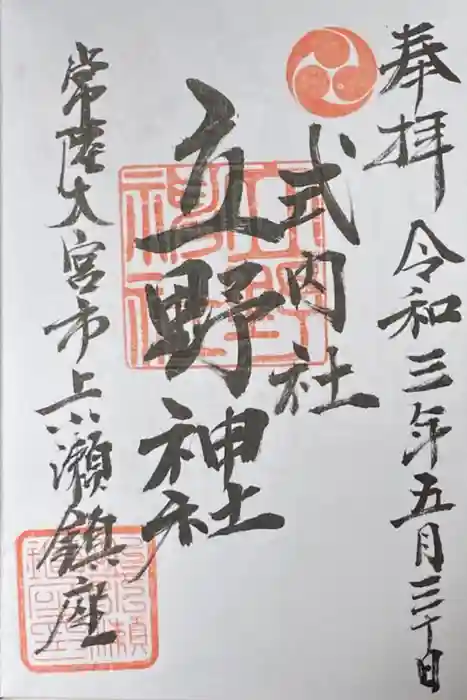 奉拝
令和三年五月三十日
式内社
立野神社
常陸大宮市上小瀬鎮座
立野神社